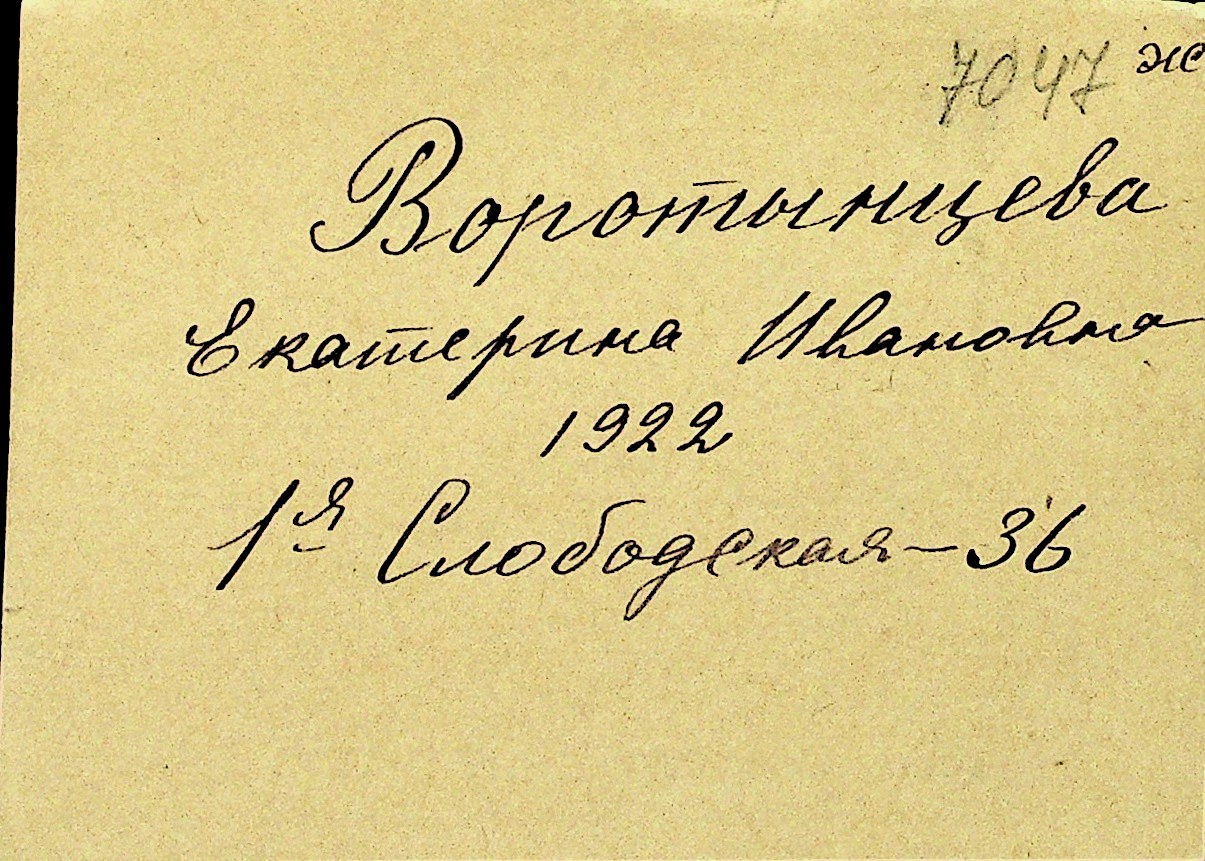 7047 ж
Воротынцева
Екатерина Ивановна
1922
1я Слободская - 36